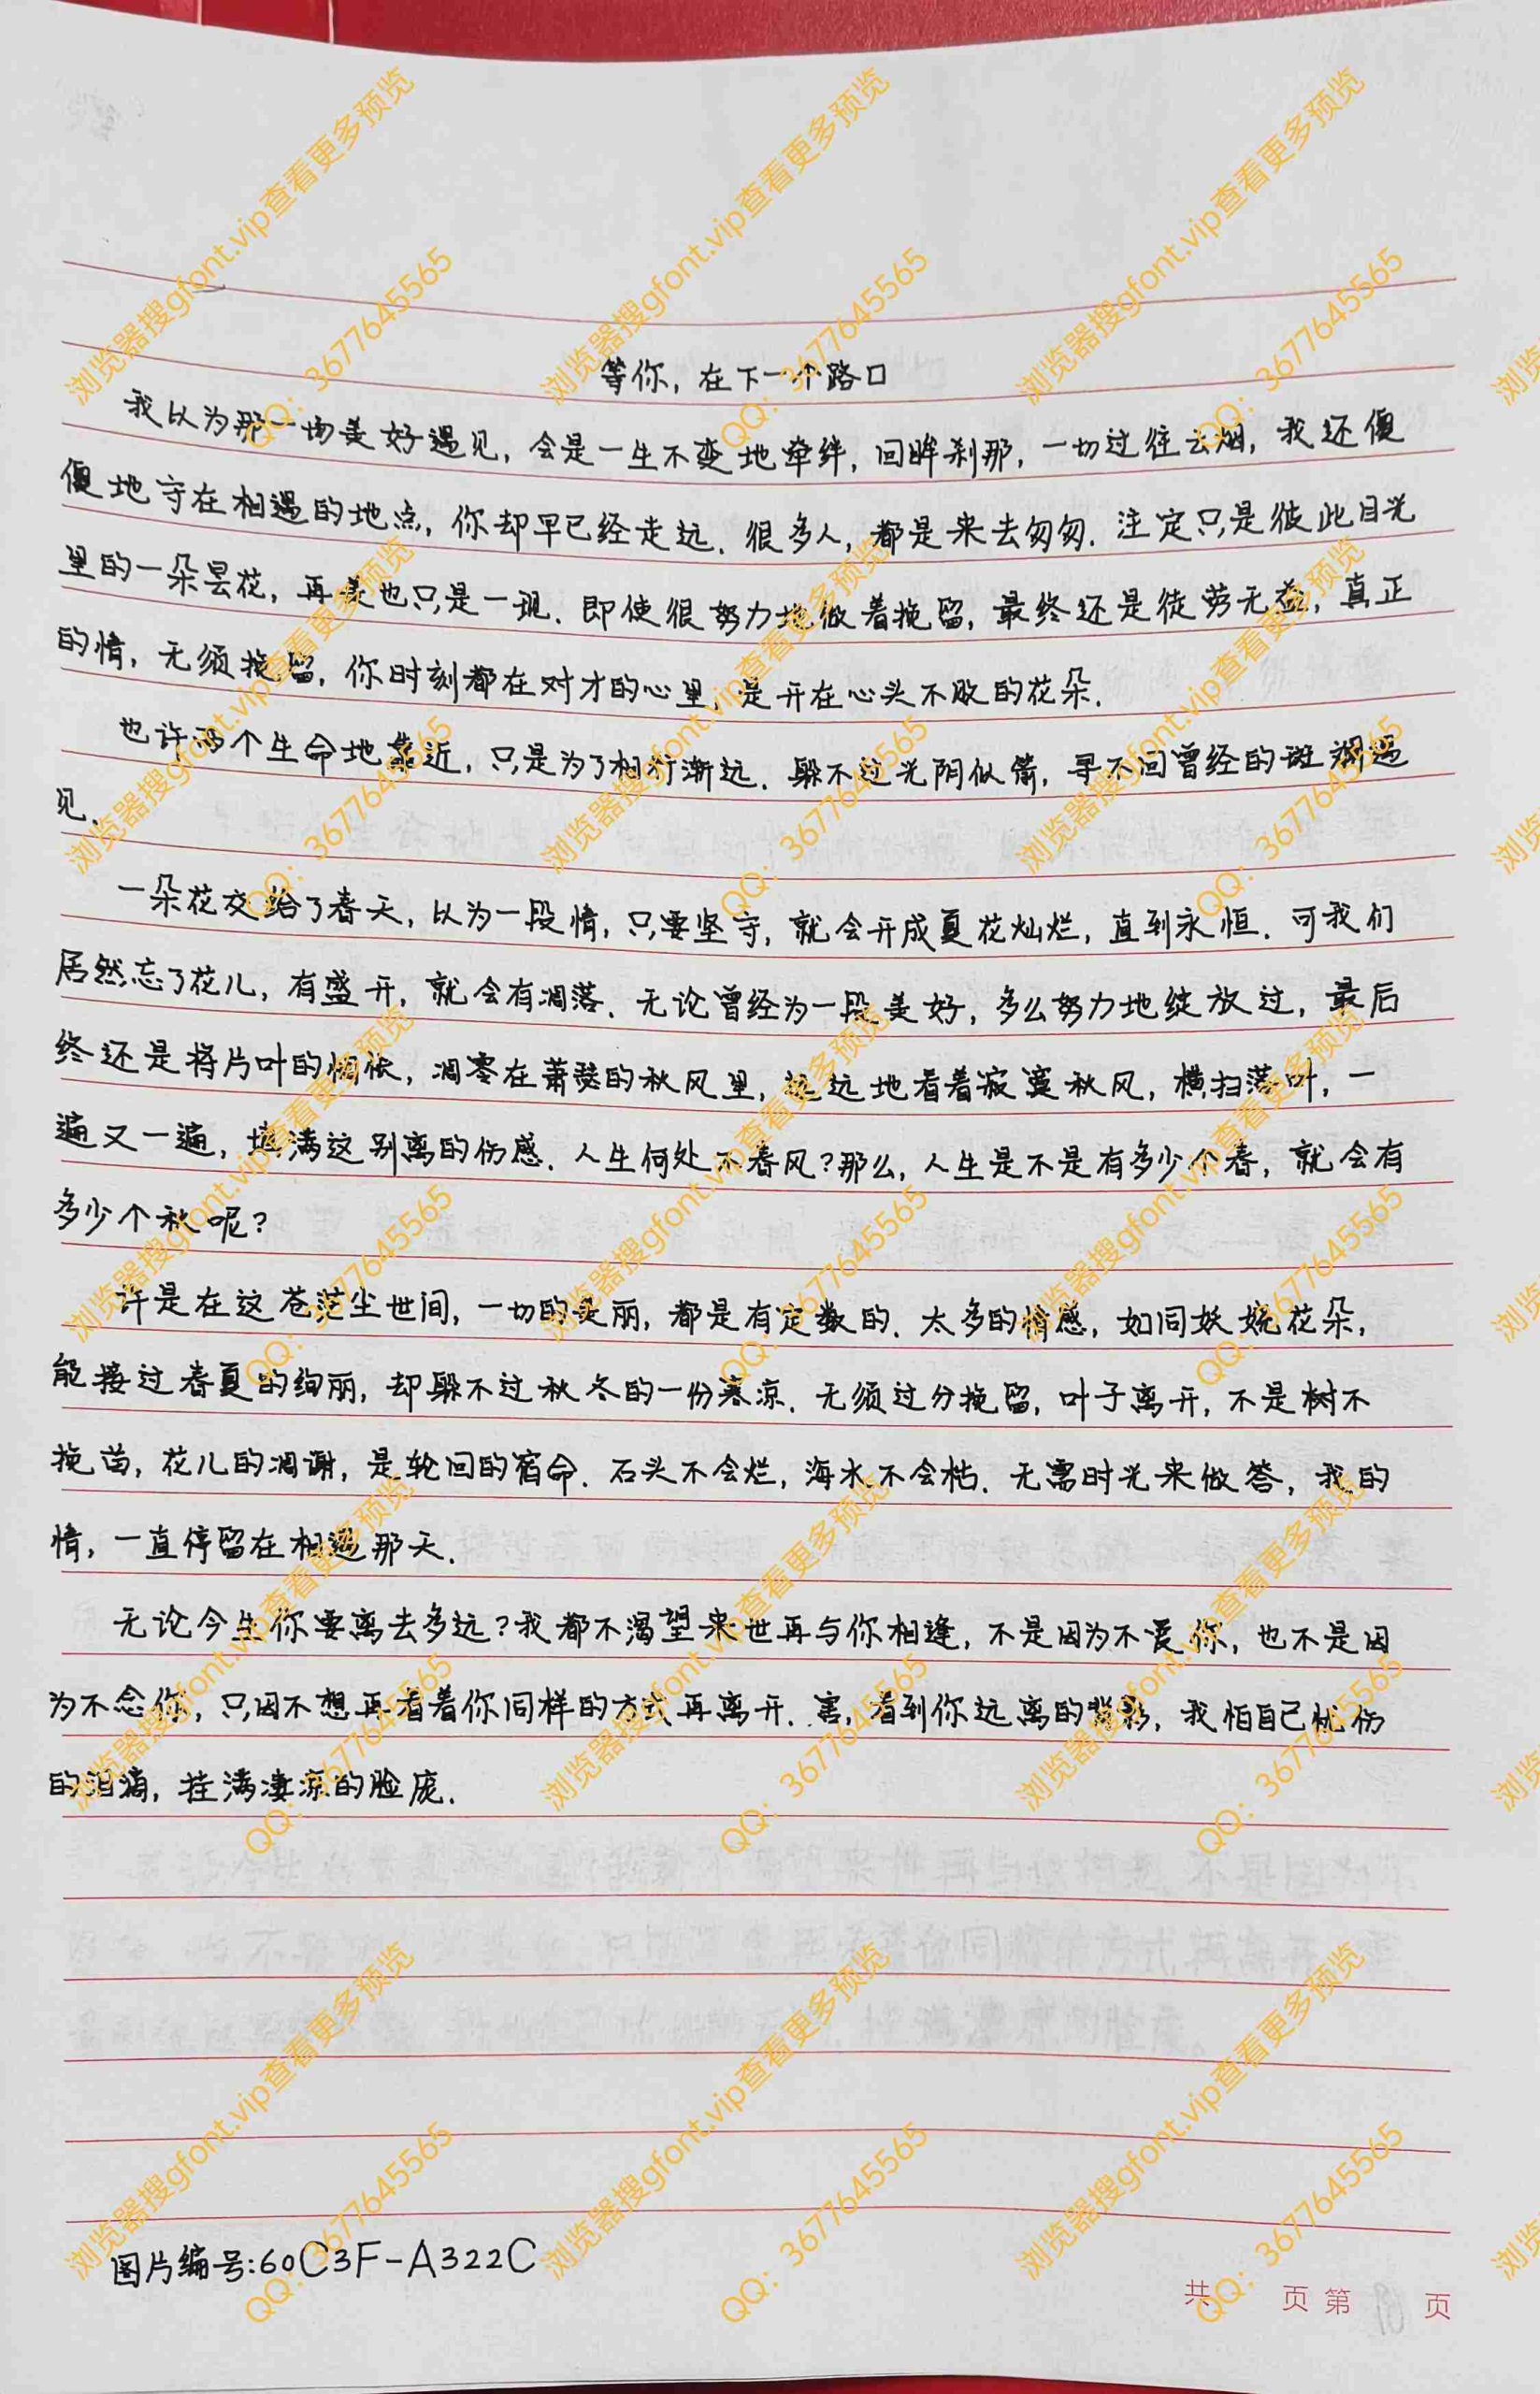 等你，在下一个路口
我以为那一场美好遇见，会是一生不变地牵绊，回眸刹那，一切过往云烟，我还傻
傻地守在相遇的地点，你却早已经走远．很多人，都是来去匆匆．注定只是彼此目光
里的一朵昙花，再美也只是一现．即使很努力地做着挽留，最终还是徒劳无益，真正
的情，无须挽留，你时刻都在对才的心里，是开在心头不败的花朵．
也许两个生命地靠近，只是为了相行渐远．躲不过光阴似箭，寻不回曾经的斑斓遇
见．
一朵花交给了春天，以为一段情，只要坚守，就会开成夏花灿烂，直到永恒．可我们
居然忘了花儿，有盛开，就会有凋落．无论曾经为一段美好，多么努力地绽放过，最后
终还是将片叶的惆怅，凋零在萧瑟的秋风里，远远地看着寂寞秋风，横扫落叶，一
遍又一遍，填满这别离的伤感．人生何处不春风？那么，人生是不是有多少个春，就会有
多少个秋呢？
许是在这苍茫尘世间，一切的美丽，都是有定数的．太多的情感，如同妖娆花朵，
能接过春夏的绚丽，却躲不过秋冬的一份寒凉．无须过分挽留，叶子离开，不是树不
挽苗，花儿的凋谢，是轮回的宿命．石头不会烂，海水不会枯．无需时光来做答，我的
情，一直停留在相遇那天．
无论今生你要离去多远？我都不渴望来世再与你相逢，不是因为不爱你，也不是因
为不念你，只因不想再看着你同样的方式再离开．害，看到你远离的背影，我怕自己忧伤
的泪滴，挂满凄凉的脸庞．
图片编号:60C3F-A322C
共 页 第 页
浏览器搜gfont.vip查看更多预览
QQ：3677645565